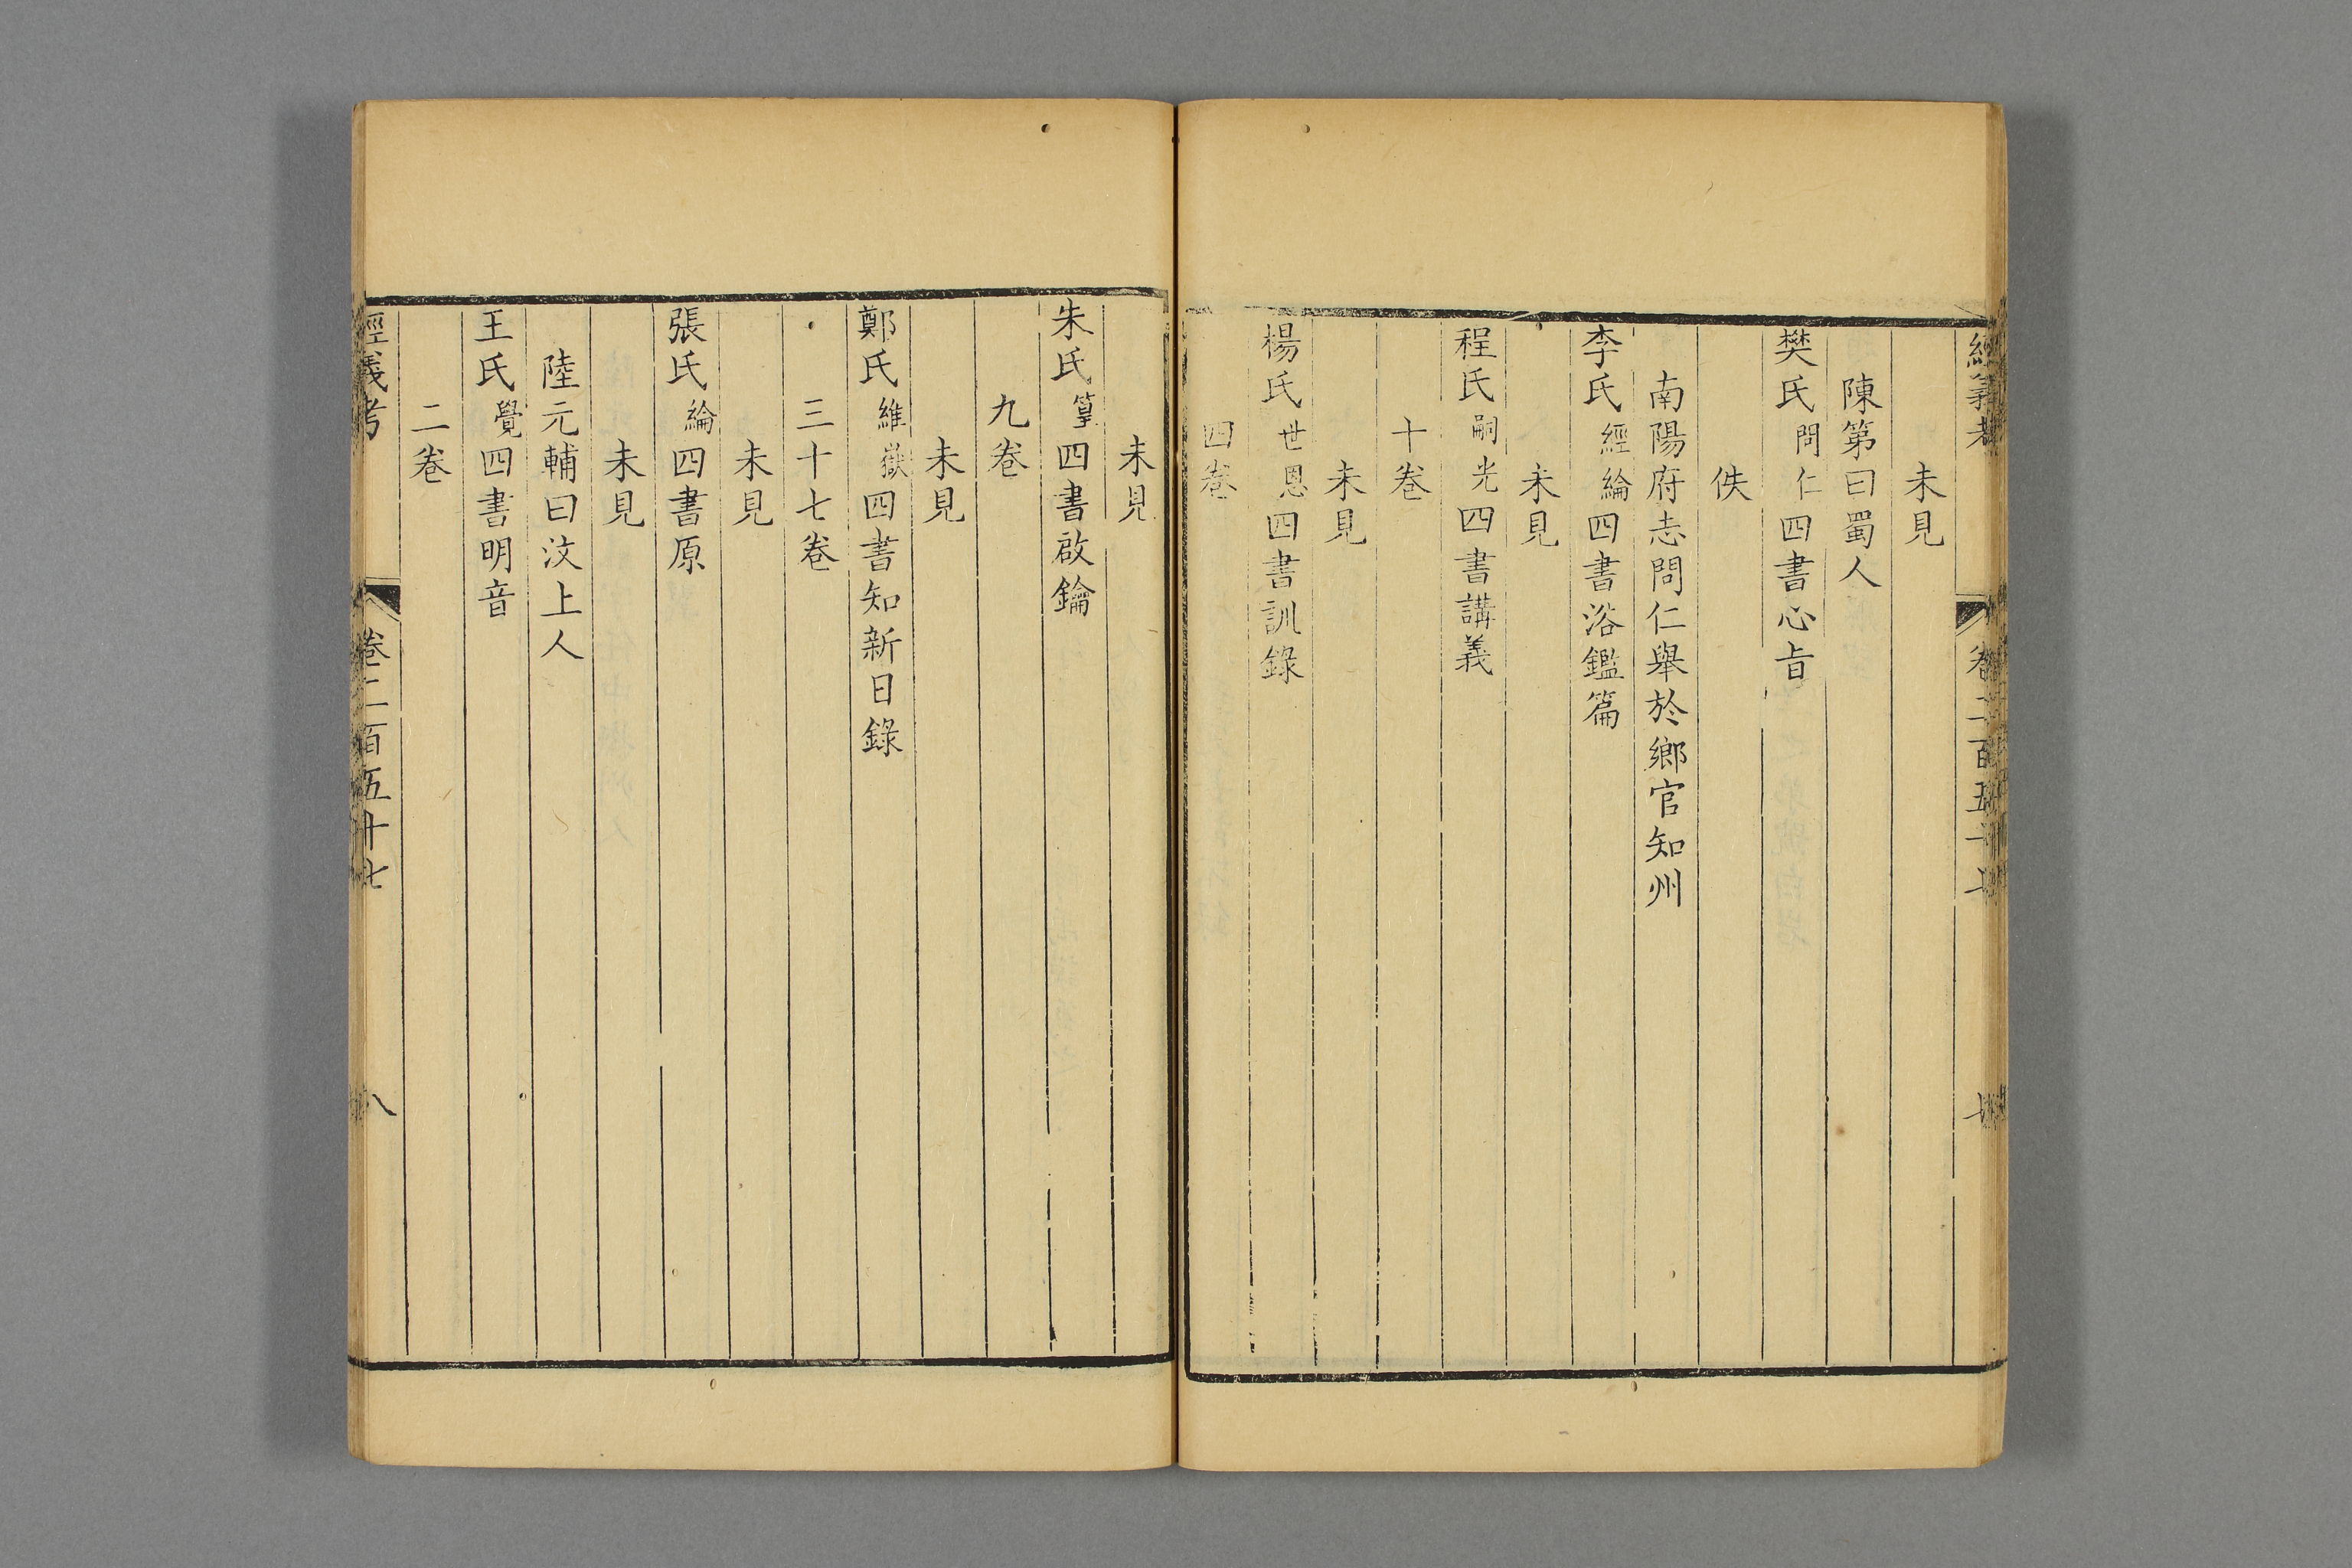 經義考 卷二百五十七 七
未見
陳第曰蜀人
樊氏問仁四書心旨
佚
南陽府志問仁舉於鄉官知州
李氏經綸四書浴鑑篇
未見
程氏嗣光四書講義
十卷
未見
楊氏世恩四書訓錄
四卷
未見
朱氏篁四書啟鑰
九卷
未見
鄭氏維嶽四書知新日錄
三十七卷
未見
張氏綸四書原
未見
陸元輔曰汶上人
王氏覺四書明音
二卷
經義考 卷二百五十七 八